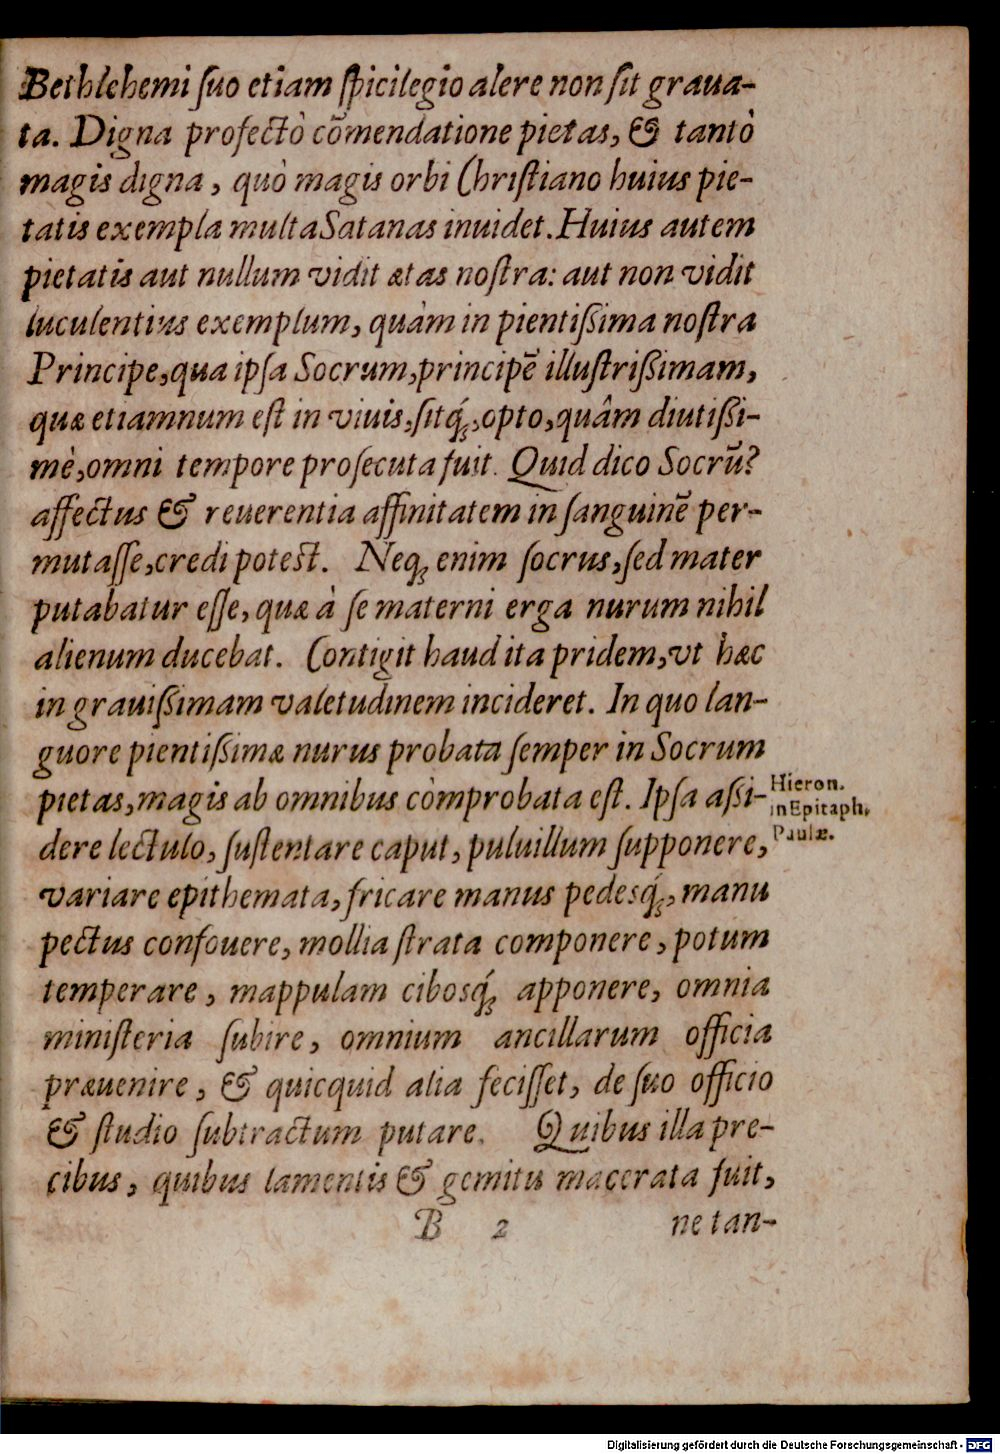 Bethlehemi ſuo etiam ſpicilegio alere non ſit graua-
ta. Digna profectò cõmendatione pietas, & tantò
magis digna, quò magis orbi Chriſtiano huius pie-
tatis exempla multa Satanas inuidet. Huius autem
pietatis aut nullum vidit ætas noſtra: aut non vidit
luculentius exemplum, quàm in pientiſsima noſtra
Principe, qua ipſa Socrum, principẽ illuſtriſsimam,
quæ etiamnum eſt in viuis, ſitq́;, opto, quâm diutiſsi-
mè, omni tempore proſecuta fuit. Quid dico Socrũ?
affectus & reuerentia affinitatem in ſanguinẽ per-
mutaſſe, credi poteſt. Neq; enim ſocrus, ſed mater
putabatur eſſe, quæ à ſe materni erga nurum nihil
alienum ducebat. Contigit haud ita pridem, vt hæc
in grauiſsimam valetudinem incideret. In quo lan-
guore pientiſsimæ nurus probata ſemper in Socrum
pietas, magis ab omnibus còmprobata eſt. Ipſa aſsi-
dere lectulo, ſuſtentare caput, puluillum ſupponere,
variare epithemata, fricare manus pedesq́;, manu
pectus confouere, mollia ſtrata componere, potum
temperare, mappulam cibosq́; apponere, omnia
miniſteria ſubire, omnium ancillarum officia
præuenire, & quicquid alia feciſſet, de ſuo officio
& ſtudio ſubtractum putare. Quibus illa pre-
cibus, quibus lamentis & gemitu macerata fuit,
B 2 ne tan-
Hieron.
in Epitaph.
Paulæ.
Digitalisierung gefördert durch die Deutsche Forschungsgemeinschaft - DFG